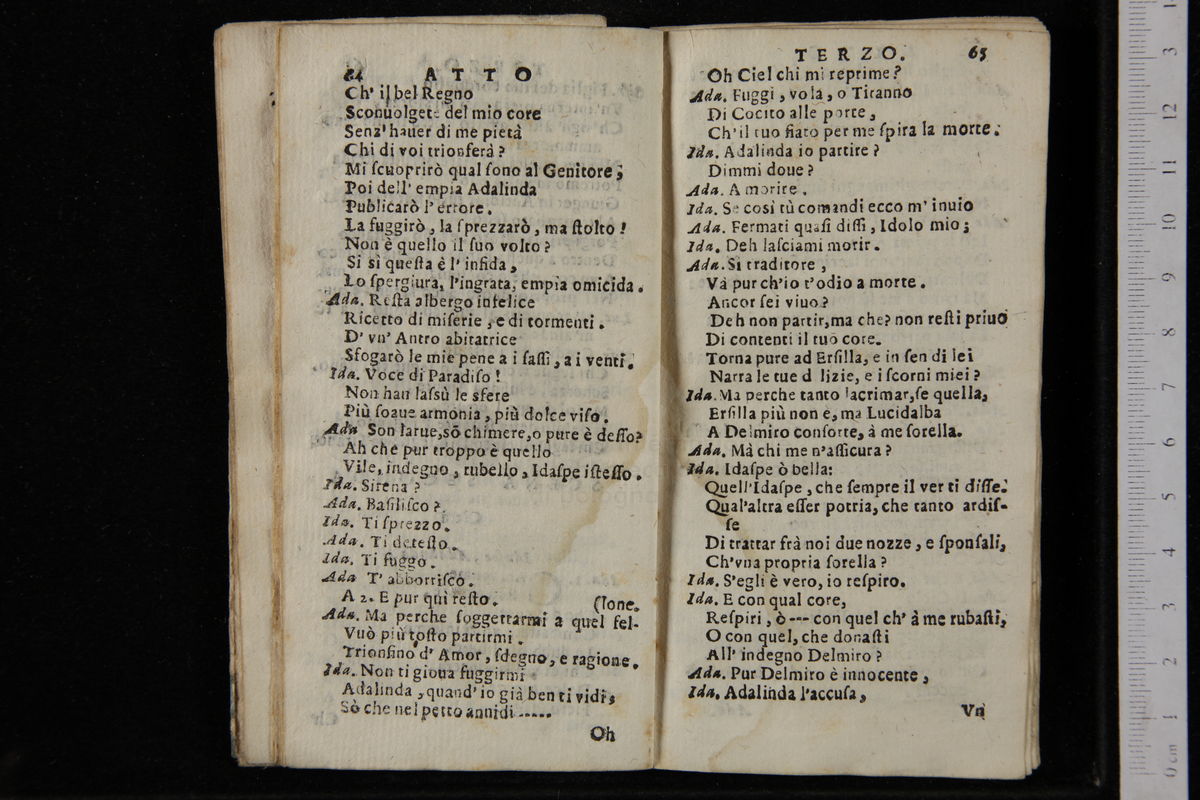 64 ATTO
Ch' il bel Regno
Sconuolgete del mio core
Senz' hauer di me pietà
Chi di voi trionferà?
Mi scuoprirò qual sono al Genitore;
Poi dell' empia Adalinda
Publicarò l' errore.
La fuggirò, la sprezzarò, ma stolto!
Non è quello il suo volto?
Si sì questa è l' infida,
Lo spergiura, l'ingrata, empia omicida.
Ada. Resta albergo infelice
Ricetto di miserie, e di tormenti.
D' vn' Antro abitatrice
Sfogarò le mie pene a i sassi, a i venti.
Ida. Voce di Paradiso!
Non han lassù le sfere
Più soaue armonia, più dolce viso.
Ada Son larue, sō chimere, o pure è desso?
Ah che pur troppo è quello
Vile, indegno, rubello, Idaspe istesso.
Ida. Sirena?
Ada. Basilisco?
Ida. Ti sprezzo.
Ada. Ti detesto.
Ida. Ti fuggo.
Ada T' abborrisco.
A 2. E pur quì resto. (lone.
Ada. Ma perche soggettarmi a quel fel-
Vuò più tosto partirmi.
Trionfino d' Amor, sdegno, e ragione.
Ida. Non ti gioua fuggirmi
Adalinda, quand' io già ben ti vidi,
Sò che nel petto annidi -----
Oh
TERZO. 65
Oh Ciel chi mi reprime?
Ada. Fuggi, vola, o Tiranno
Di Cocito alle porte,
Ch'il tuo fiato per me spira la morte.
Ida. Adalinda io partire?
Dimmi doue?
Ada. A morire.
Ida. Se così tù comandi ecco m' inuio
Ada. Fermati quasi dissi, Idolo mio;
Ida. Deh lasciami morir.
Ada. Si traditore,
Và pur ch'io t'odio a morte.
Ancor sei viuo?
Deh non partir, ma che? non resti priuo
Di contenti il tuo core.
Torna pure ad Ersilla, e in sen di lei
Narra le tue d lizie, e i scorni miei?
Ida. Ma perche tanto lacrimar, se quella,
Ersilla più non è, ma Lucidalba
A Delmiro consorte, à me sorella.
Ada. Mà chi me n'assicura?
Ida. Idaspe ò bella:
Quell'Idaspe, che sempre il ver ti disse.
Qual'altra esser potria, che tanto ardis-
se
Di trattar frà noi due nozze, e sponsali,
Ch'vna propria sorella?
Ida. S'egli è vero, io respiro.
Ida. E con qual core,
Respiri, ò --- con quel ch' à me rubasti,
O con quel, che donasti
All' indegno Delmiro?
Ada. Pur Delmiro è innocente,
Ida. Adalinda l'accusa,
Vn